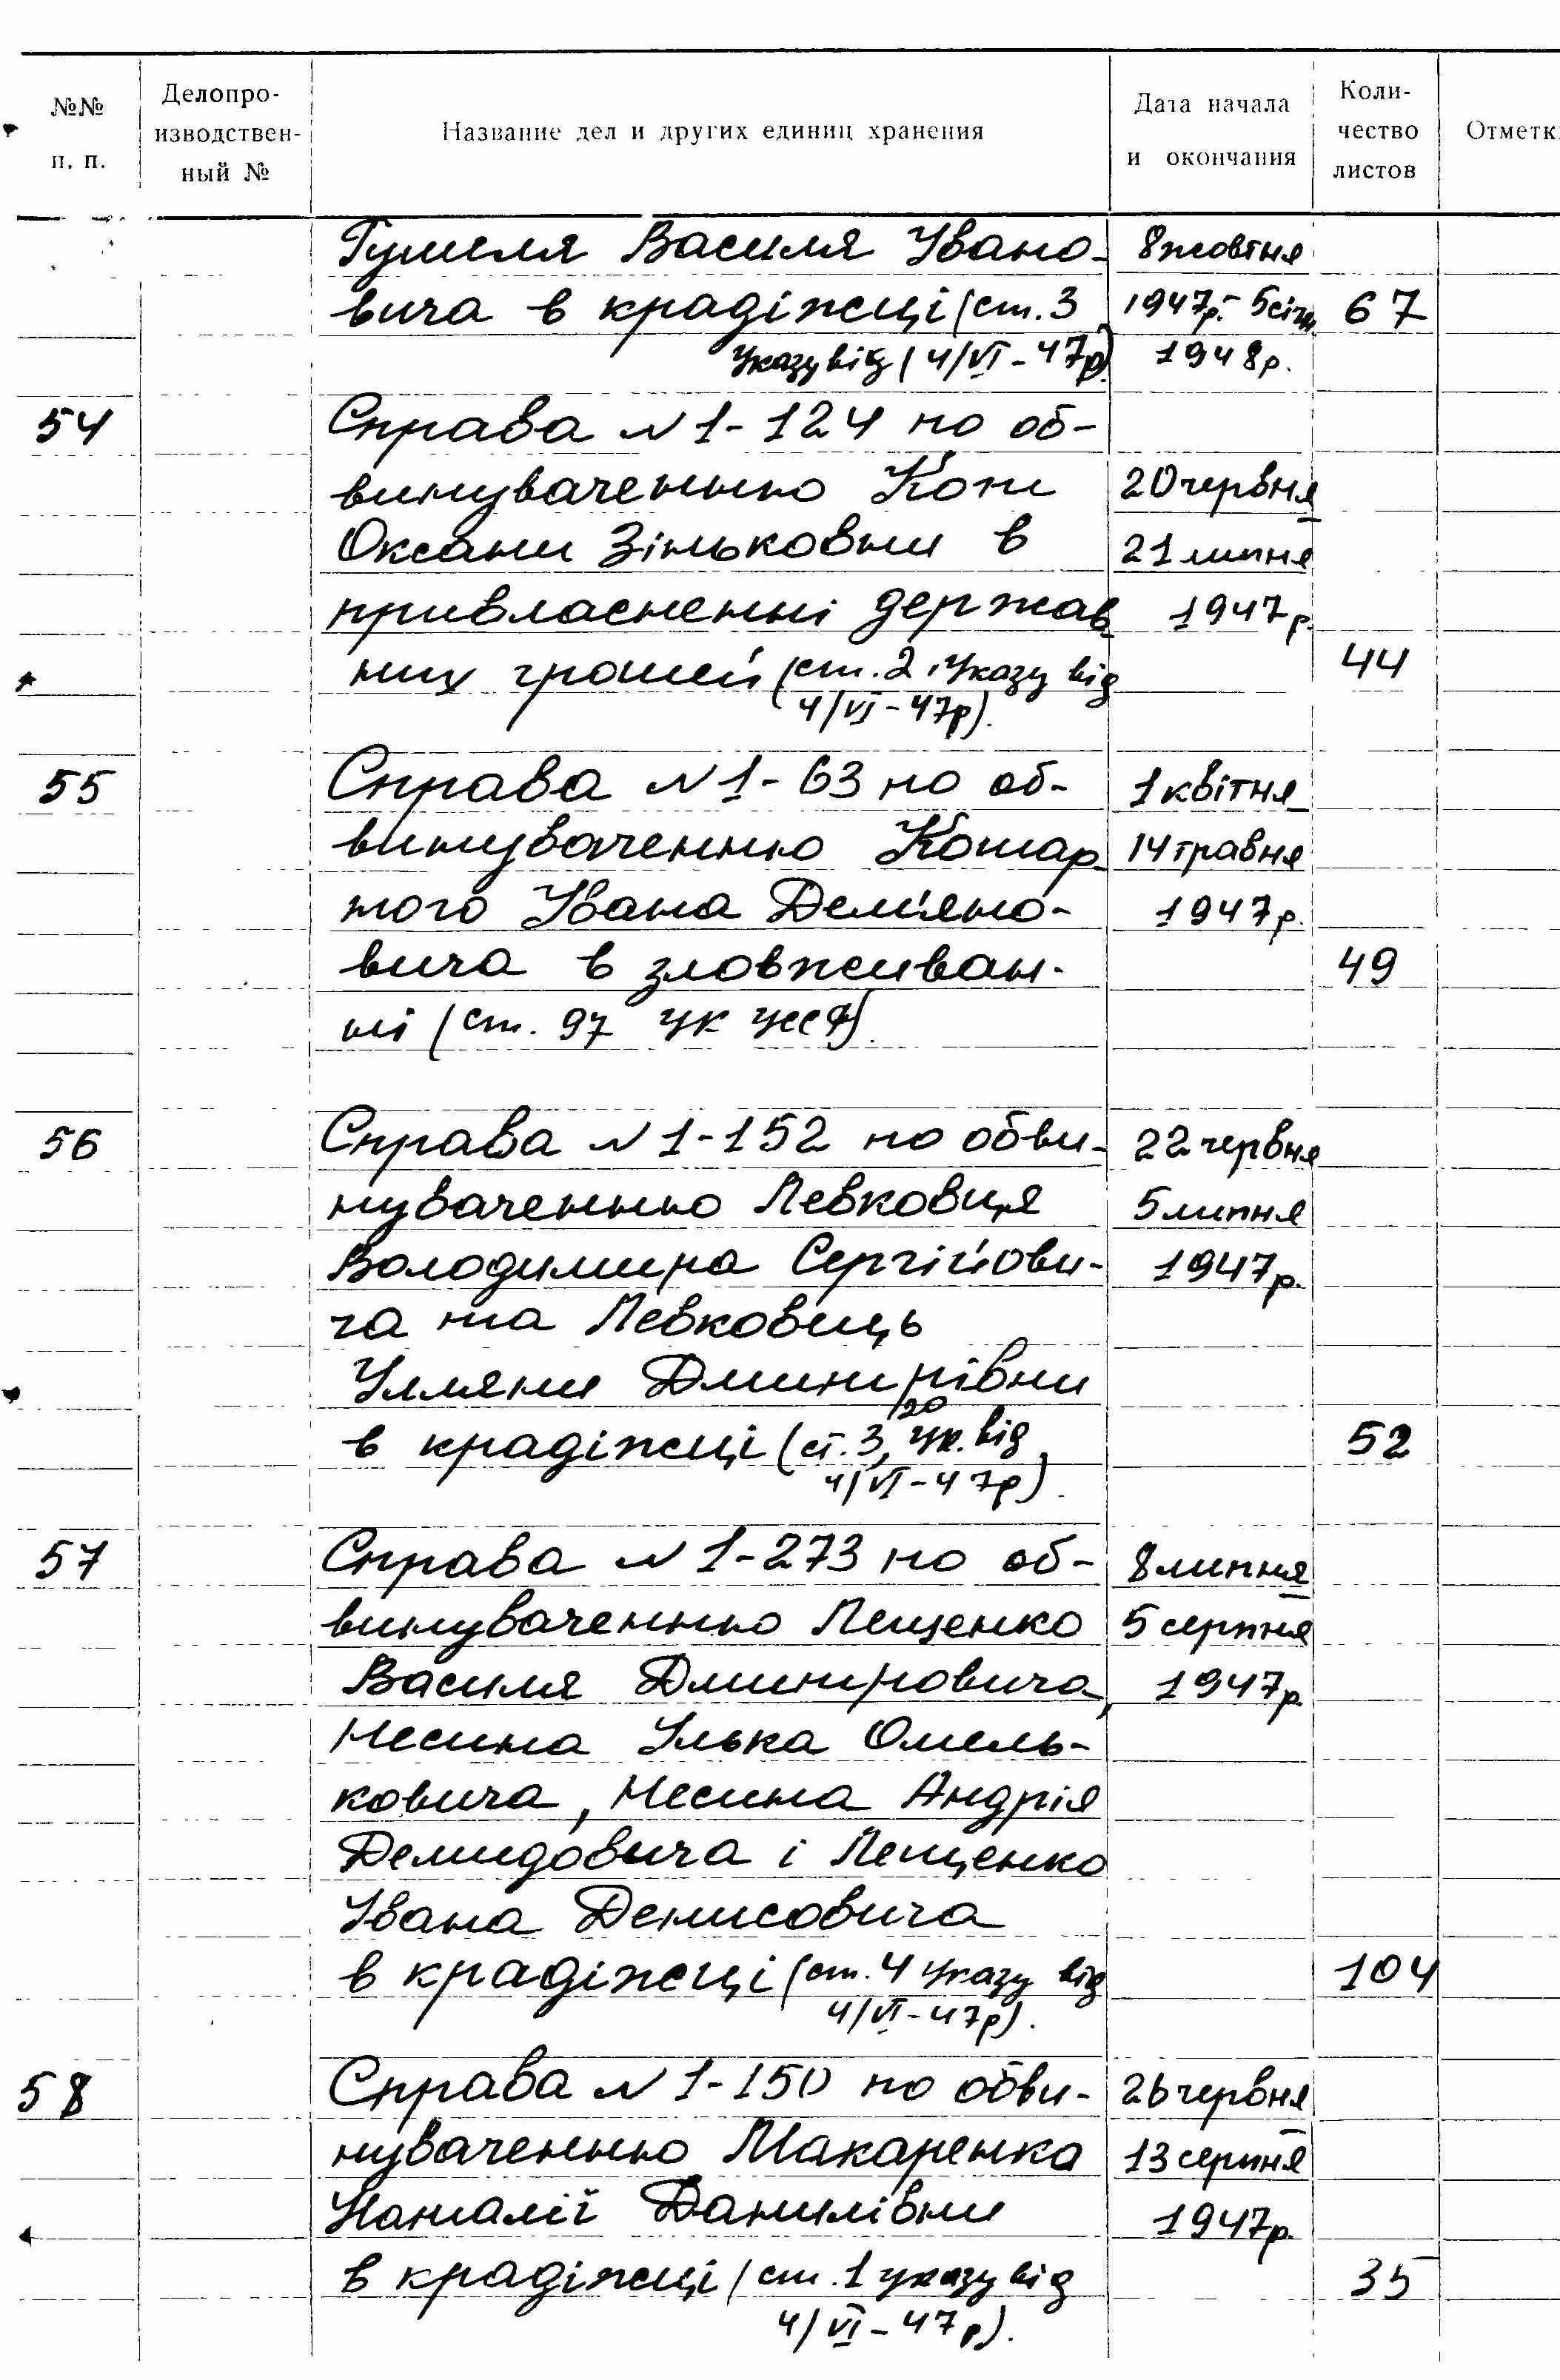 №№ п. п.
Делопроизводственный №
Название дел и других единиц хранения
Дата начала и окончания
Количество листов
Отметк
Гумеля Василя Івано- 8 жовтня
вича в крадіжці (ст. 3 1947р.- 5 січн. 67
Указу від (4/VI-47р). 1948р.
54 Справа N 1-124 по об-
винуваченню Кот 20 червня
Оксани Зіньковни в 21 липня
привласненні держав- 1947р.
них грошей (ст. 2 Указу від 44
4/VI-47р).
55 Справа N 1-63 по об- 1 квітня
винуваченню Котар- 14 травня
того Івана Дем'яно- 1947р.
вича в зловживан- 49
ні (ст. 97 УК УССР).
56 Справа N 1-152 по обви- 22 червня
нуваченню Левковця 5 липня
Володимира Сергійови- 1947р.
ча та Левковець
Уляни Дмитрівни
в крадіжці (ст. 3, 20 Ук. від 52
4/VI-47р).
57 Справа N 1-273 по об- 8 липня
винуваченню Лещенко 5 серпня
Василя Дмитровича, 1947р.
Несина Улька Омель-
ковича, Несина Андрія
Демидовича і Лещенко
Івана Денисовича
в крадіжці (ст. 4 Указу від 104
4/VI-47р).
58 Справа N 1-150 по обви- 26 червня
нуваченню Макаренка 13 серпня
Наталії Данилівни 1947р.
в крадіжці (ст. 1 указу від 35
4/VI-47р).